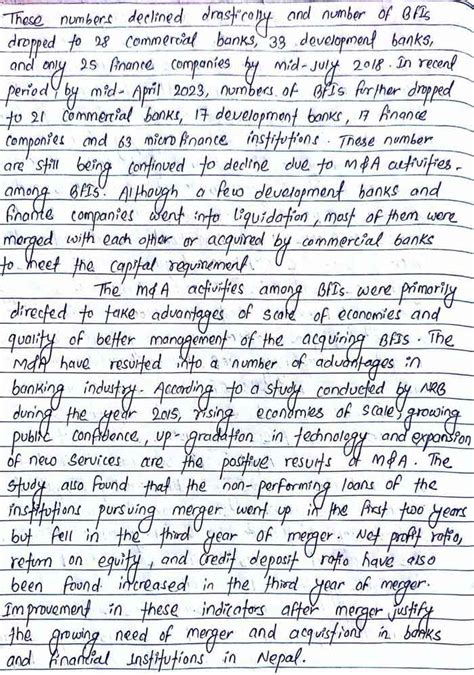 These numbers declined drastically and number of BFIs
dropped to 28 commercial banks, 33 development banks,
and only 25 finance companies by mid-july 2018. In recent
period, by mid-April 2023, numbers of BFIs further dropped
to 21 commercial banks, 17 development banks, 17 finance
companies and 63 microfinance institutions. These number
are still being continued to decline due to M&A activities.
among BFIs. Although a few development banks and
finance companies went into liquidation, most of them were
merged with each other or acquired by commercial banks
to meet the capital requirement.
The M&A activities among BFIs were primarily
directed to take advantages of scale of economies and
quality of better management of the acquiring BFIs. The
M&A have resulted into a number of advantages in
banking industry. According to a study conducted by NRB
during the year 2015, rising economies of scale, growing
public confidence, up-gradation in technology and expansion
of new services are the positive results of M&A. The
study also found that the non-performing loans of the
institutions pursuing merger went up in the first two years
but fell in the third year of merger. Net profit ratio,
return on equity, and credit deposit ratio have also
been found increased in the third year of merger.
Improvement in these indicators after merger justify
the growing need of merger and acquistions in banks
and financial institutions in Nepal.